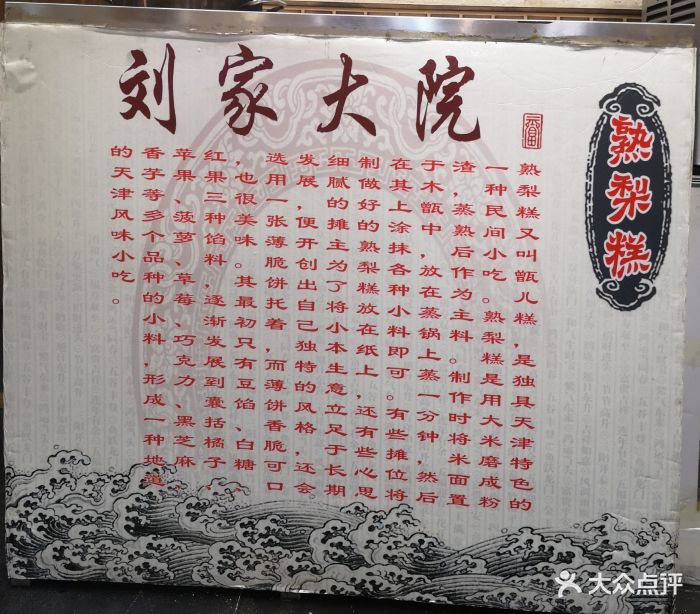 刘家大院
熟梨糕
熟梨糕又叫甑儿糕，是独具天津特色的
一种民间小吃。熟梨糕是用大米磨成粉
渣，蒸熟后作为主料。制作时将米面置
于木甑中，放在蒸锅上蒸一分钟，然后
在其上涂抹各种小料即可。有些摊位将
制做好的熟梨糕放在纸上，还有些心思
细腻的摊主为了将小本生意立足于长期
发展，便开创出自己独特的风格，还会
选用一张薄脆饼托着，而薄饼香脆可口
，也很美味。其最初只有豆馅、白糖、
红果三种馅料，逐渐发展到囊括橘子、
苹果、菠萝、草莓、巧克力、黑芝麻、
香芋等多个品种的小料，形成一种地道
的天津风味小吃。
大众点评